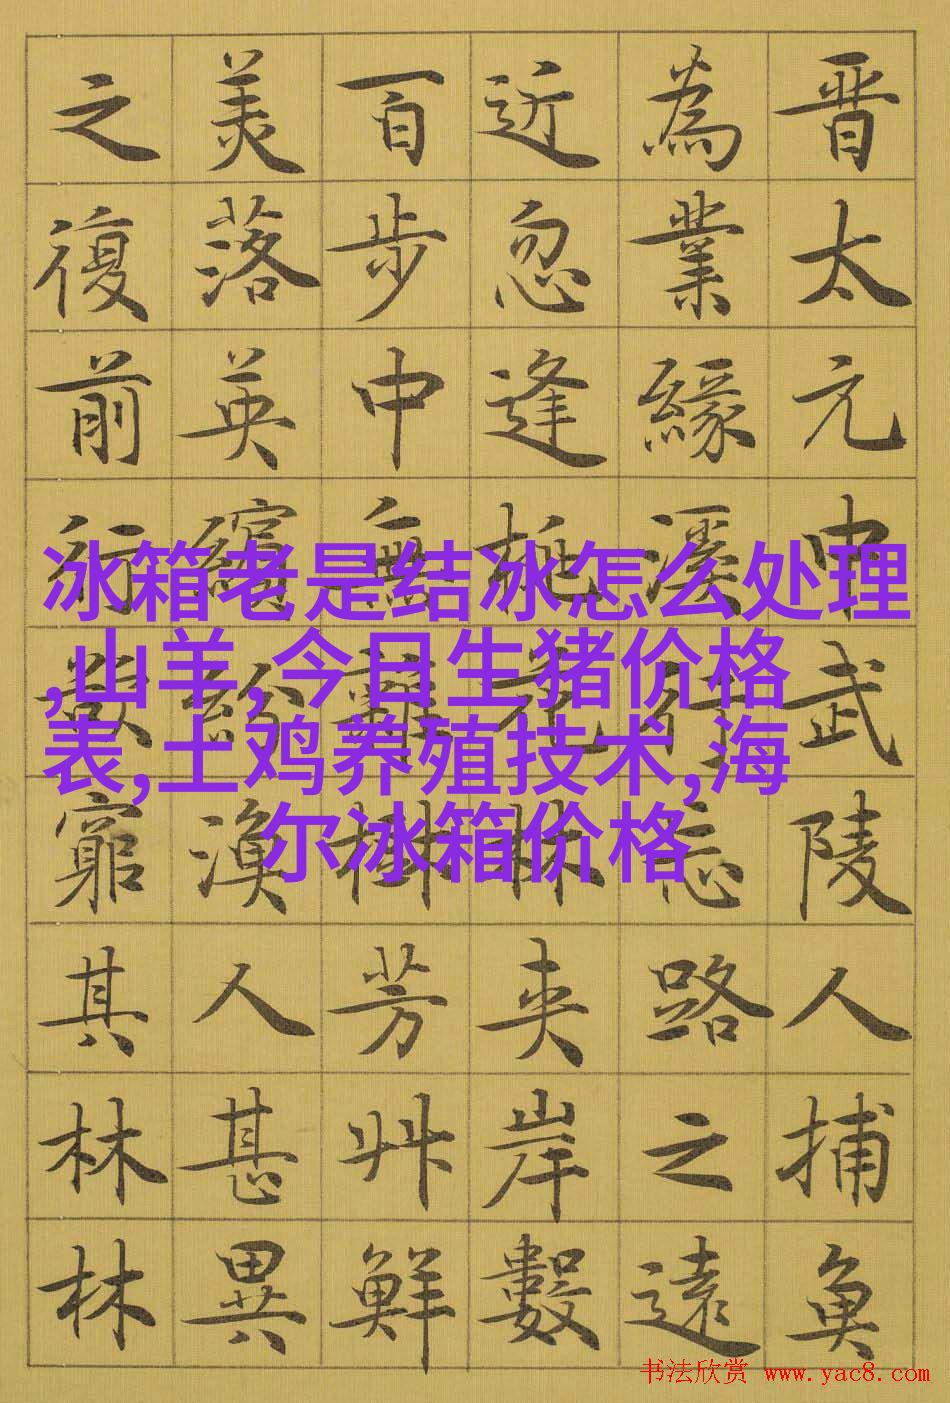 晋太元中武陵人捕魚
為業緣溪行忘路之遠
近忽逢桃花林夾岸數
百步中無雜樹芳艸鮮
美落英繽紛漁人甚異
之復前行欲窮其林林
冰箱老是结冰怎么处理
,山羊,今日生猪价格
表,土鸡养殖技术,海
尔冰箱价格
书法欣赏 www.yac8.com